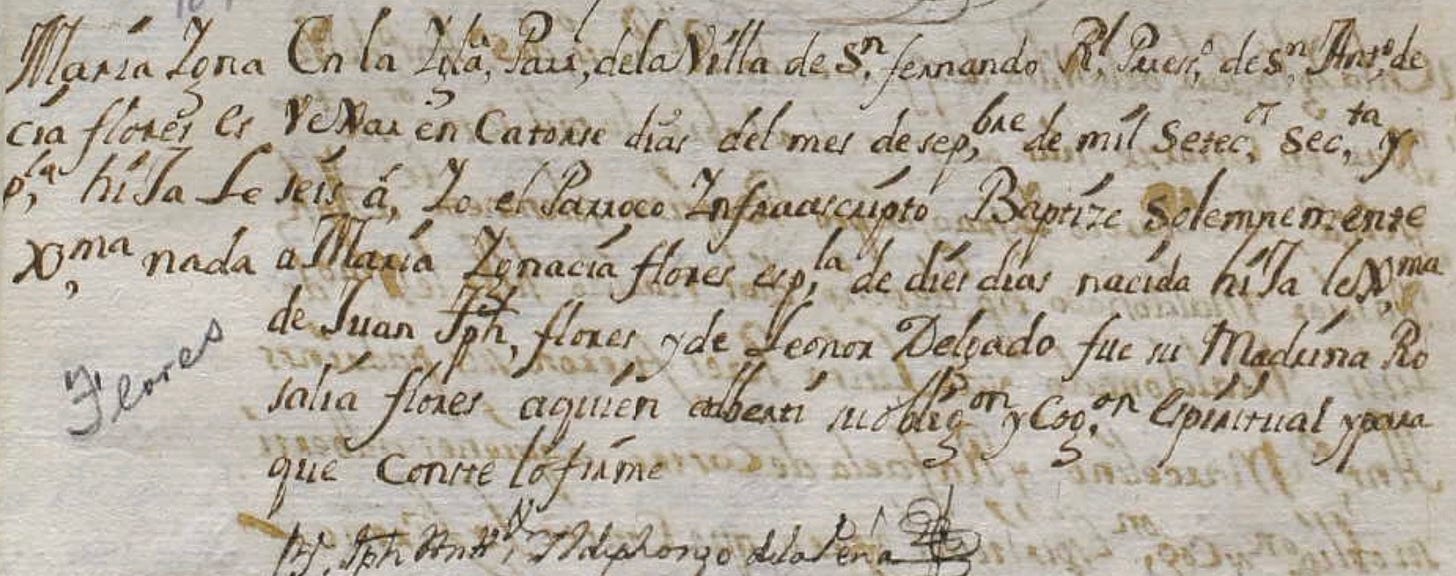 María Igna
cia flores es
p,la hiJa Le
X,ma
Flores
En la Igla, Parl, de la Villa de Sn, fernando Rl, Presi,o de Sn, Anto, de
Vexar en Catorse dias del mes de sep,bre de mil Setec,os Sec,ta y
seis a, Yo el Parroco Infraascripto Baptize Solempnemente
nada a María Ignacia flores esp,la de dies dias nacida hiJa leX,ma
de Juan Jph, flores y de Leonor Delgado fue su Madrina Ro
salia flores aquien adberti su oblig,on y Cog,on Espiritual y para
que Conste lo firme
Br, Jph Ildephonzo de la Peña